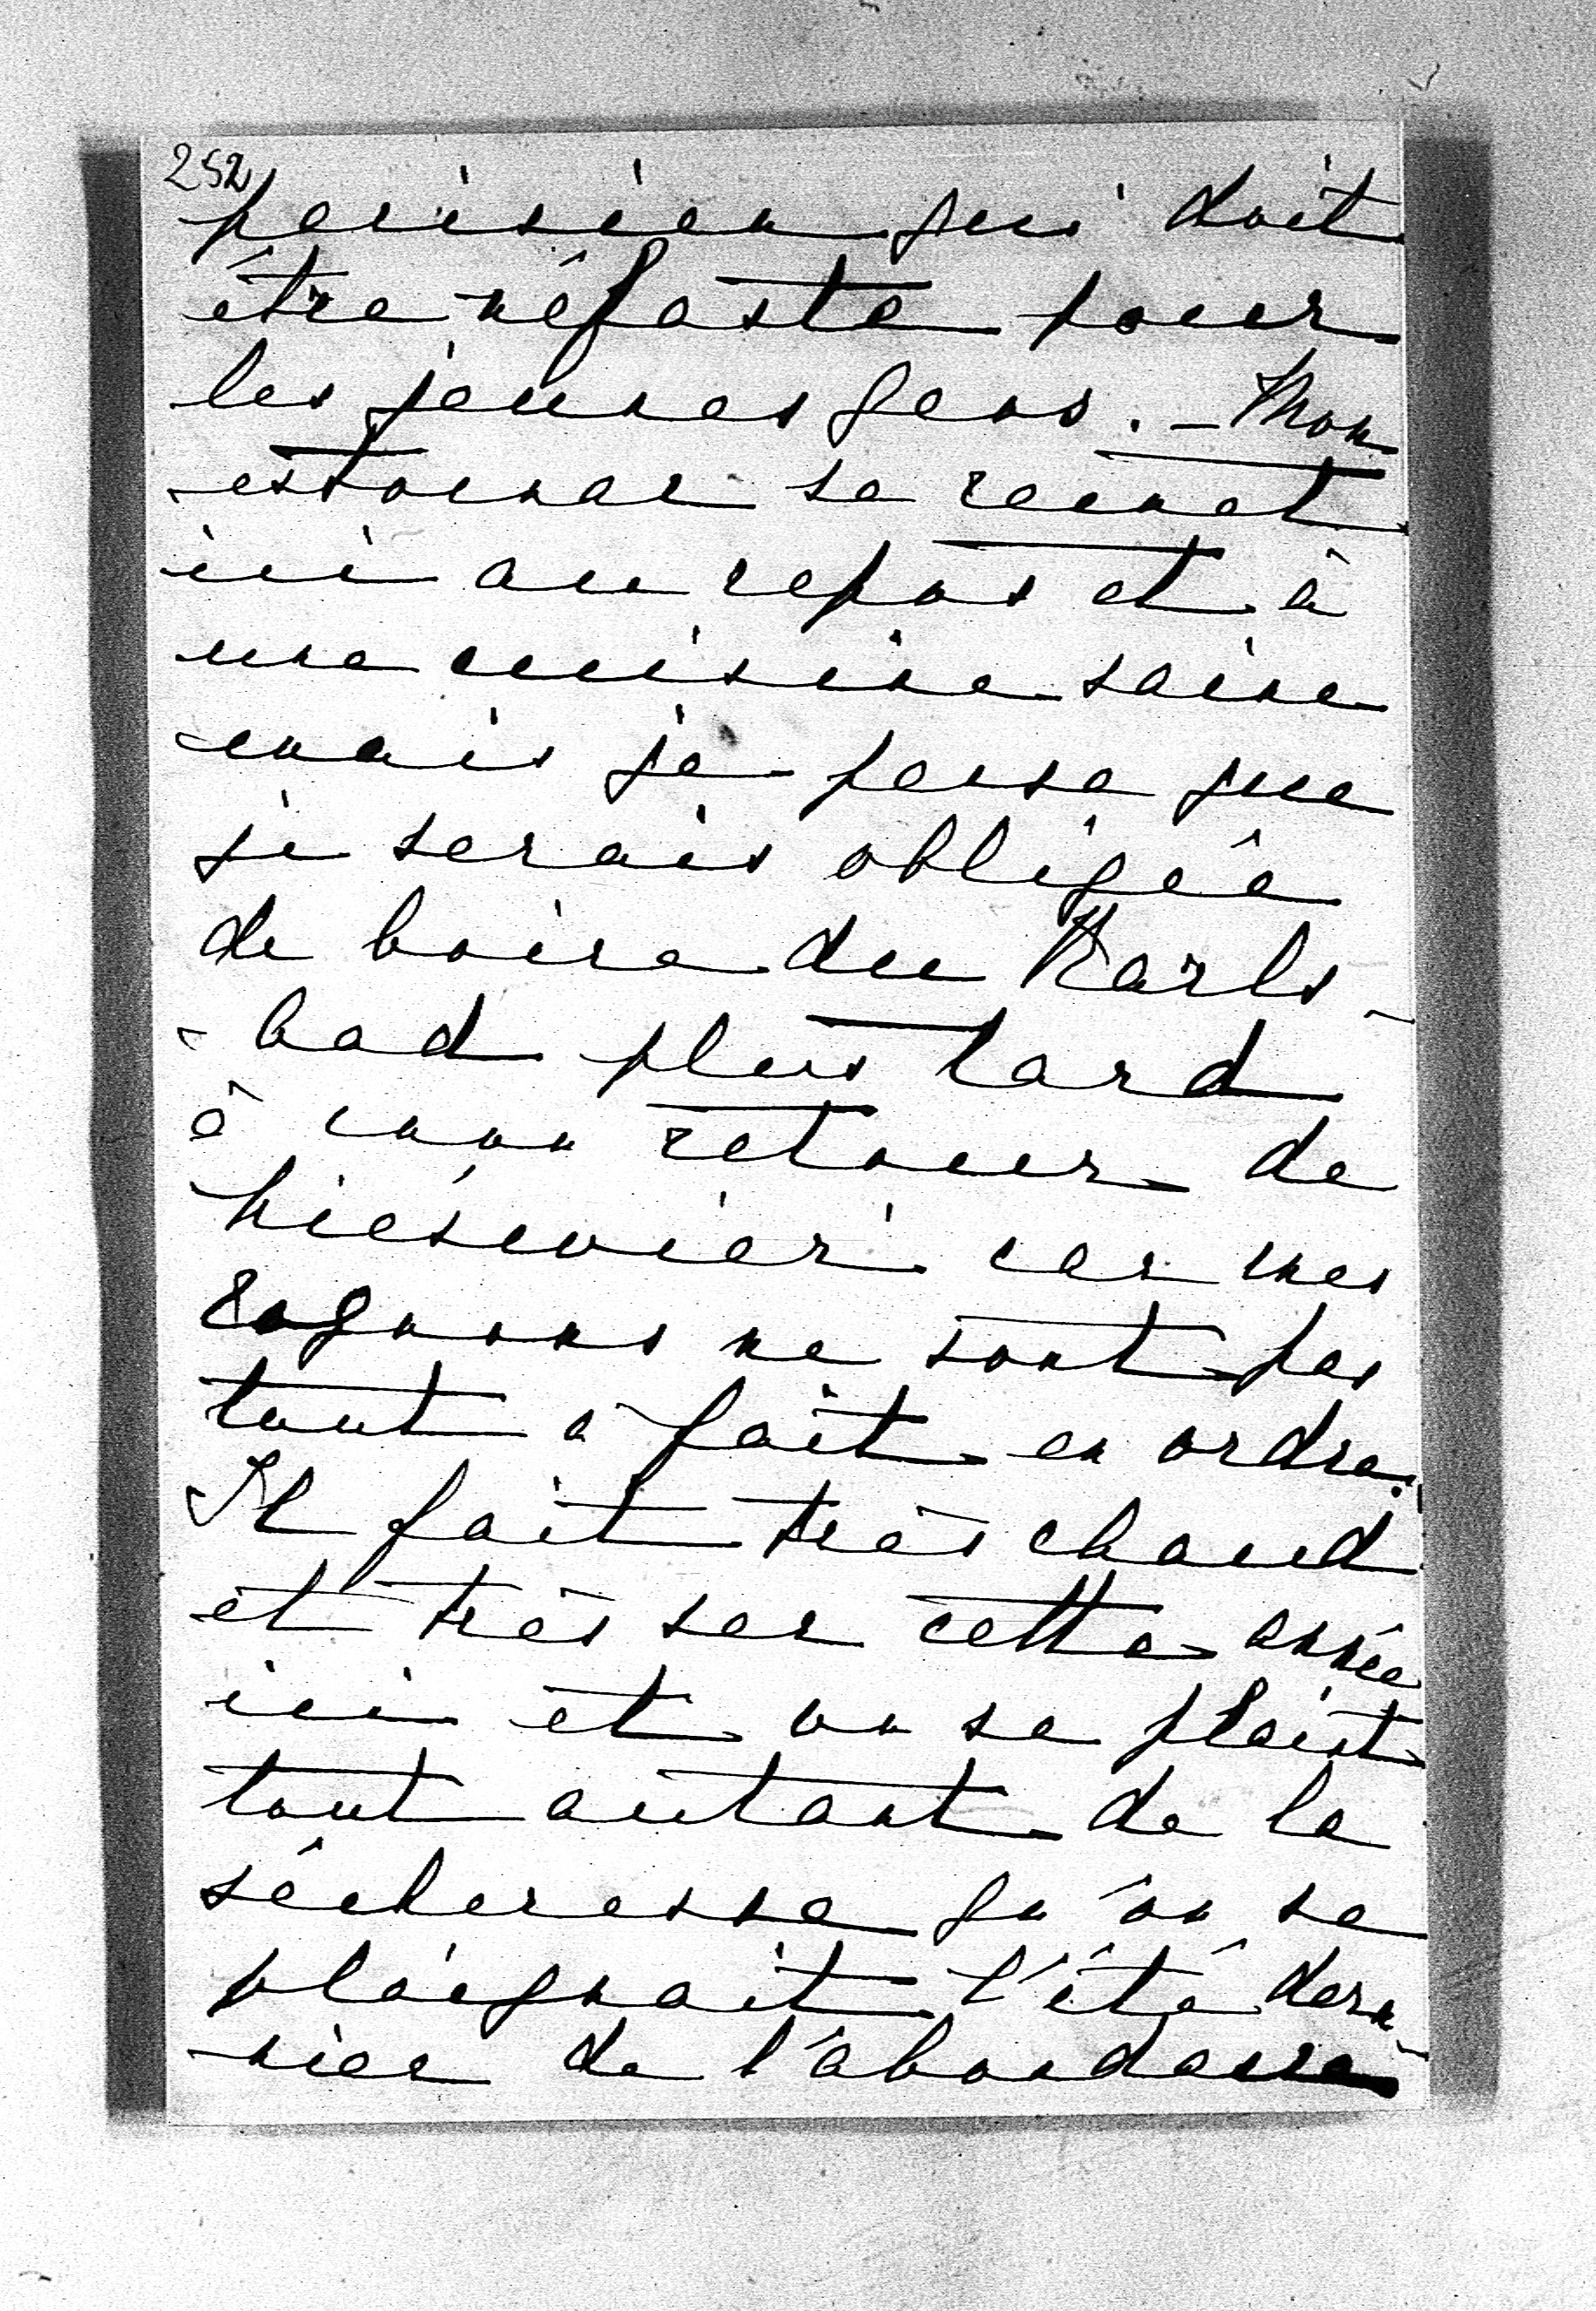 252
parisien qui doit
être néfaste pour
les jeunes gens. – Mon
estomac se remet
ici au repos et à
une cuisine saine
mais je pense que
je serais obligée
de boire du Karls-
-bad plus tard
à mon retour de
Niéswież car mes
rognons ne sont pas
tout à fait en ordre.
Il fait très chaud
et très sec cette année
ici et on se plaint
tout autant de la
sécheresse qu'on se
plaignait l'été der-
-nier de l'abondance